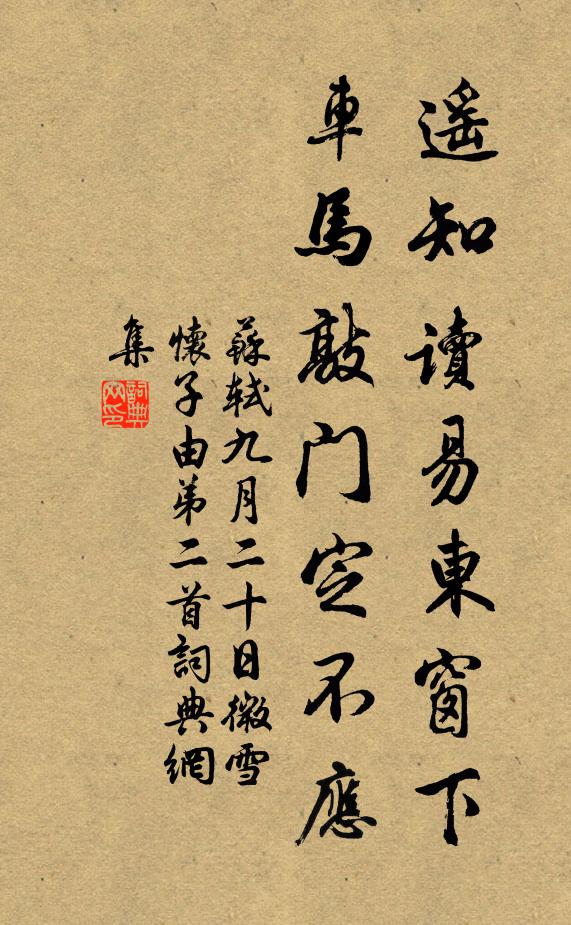 遥知讀易東窗下
車馬敲門定不應
蘇軾九月二十日微雪
懷子由弟二首詞典網
集
詞典
网印